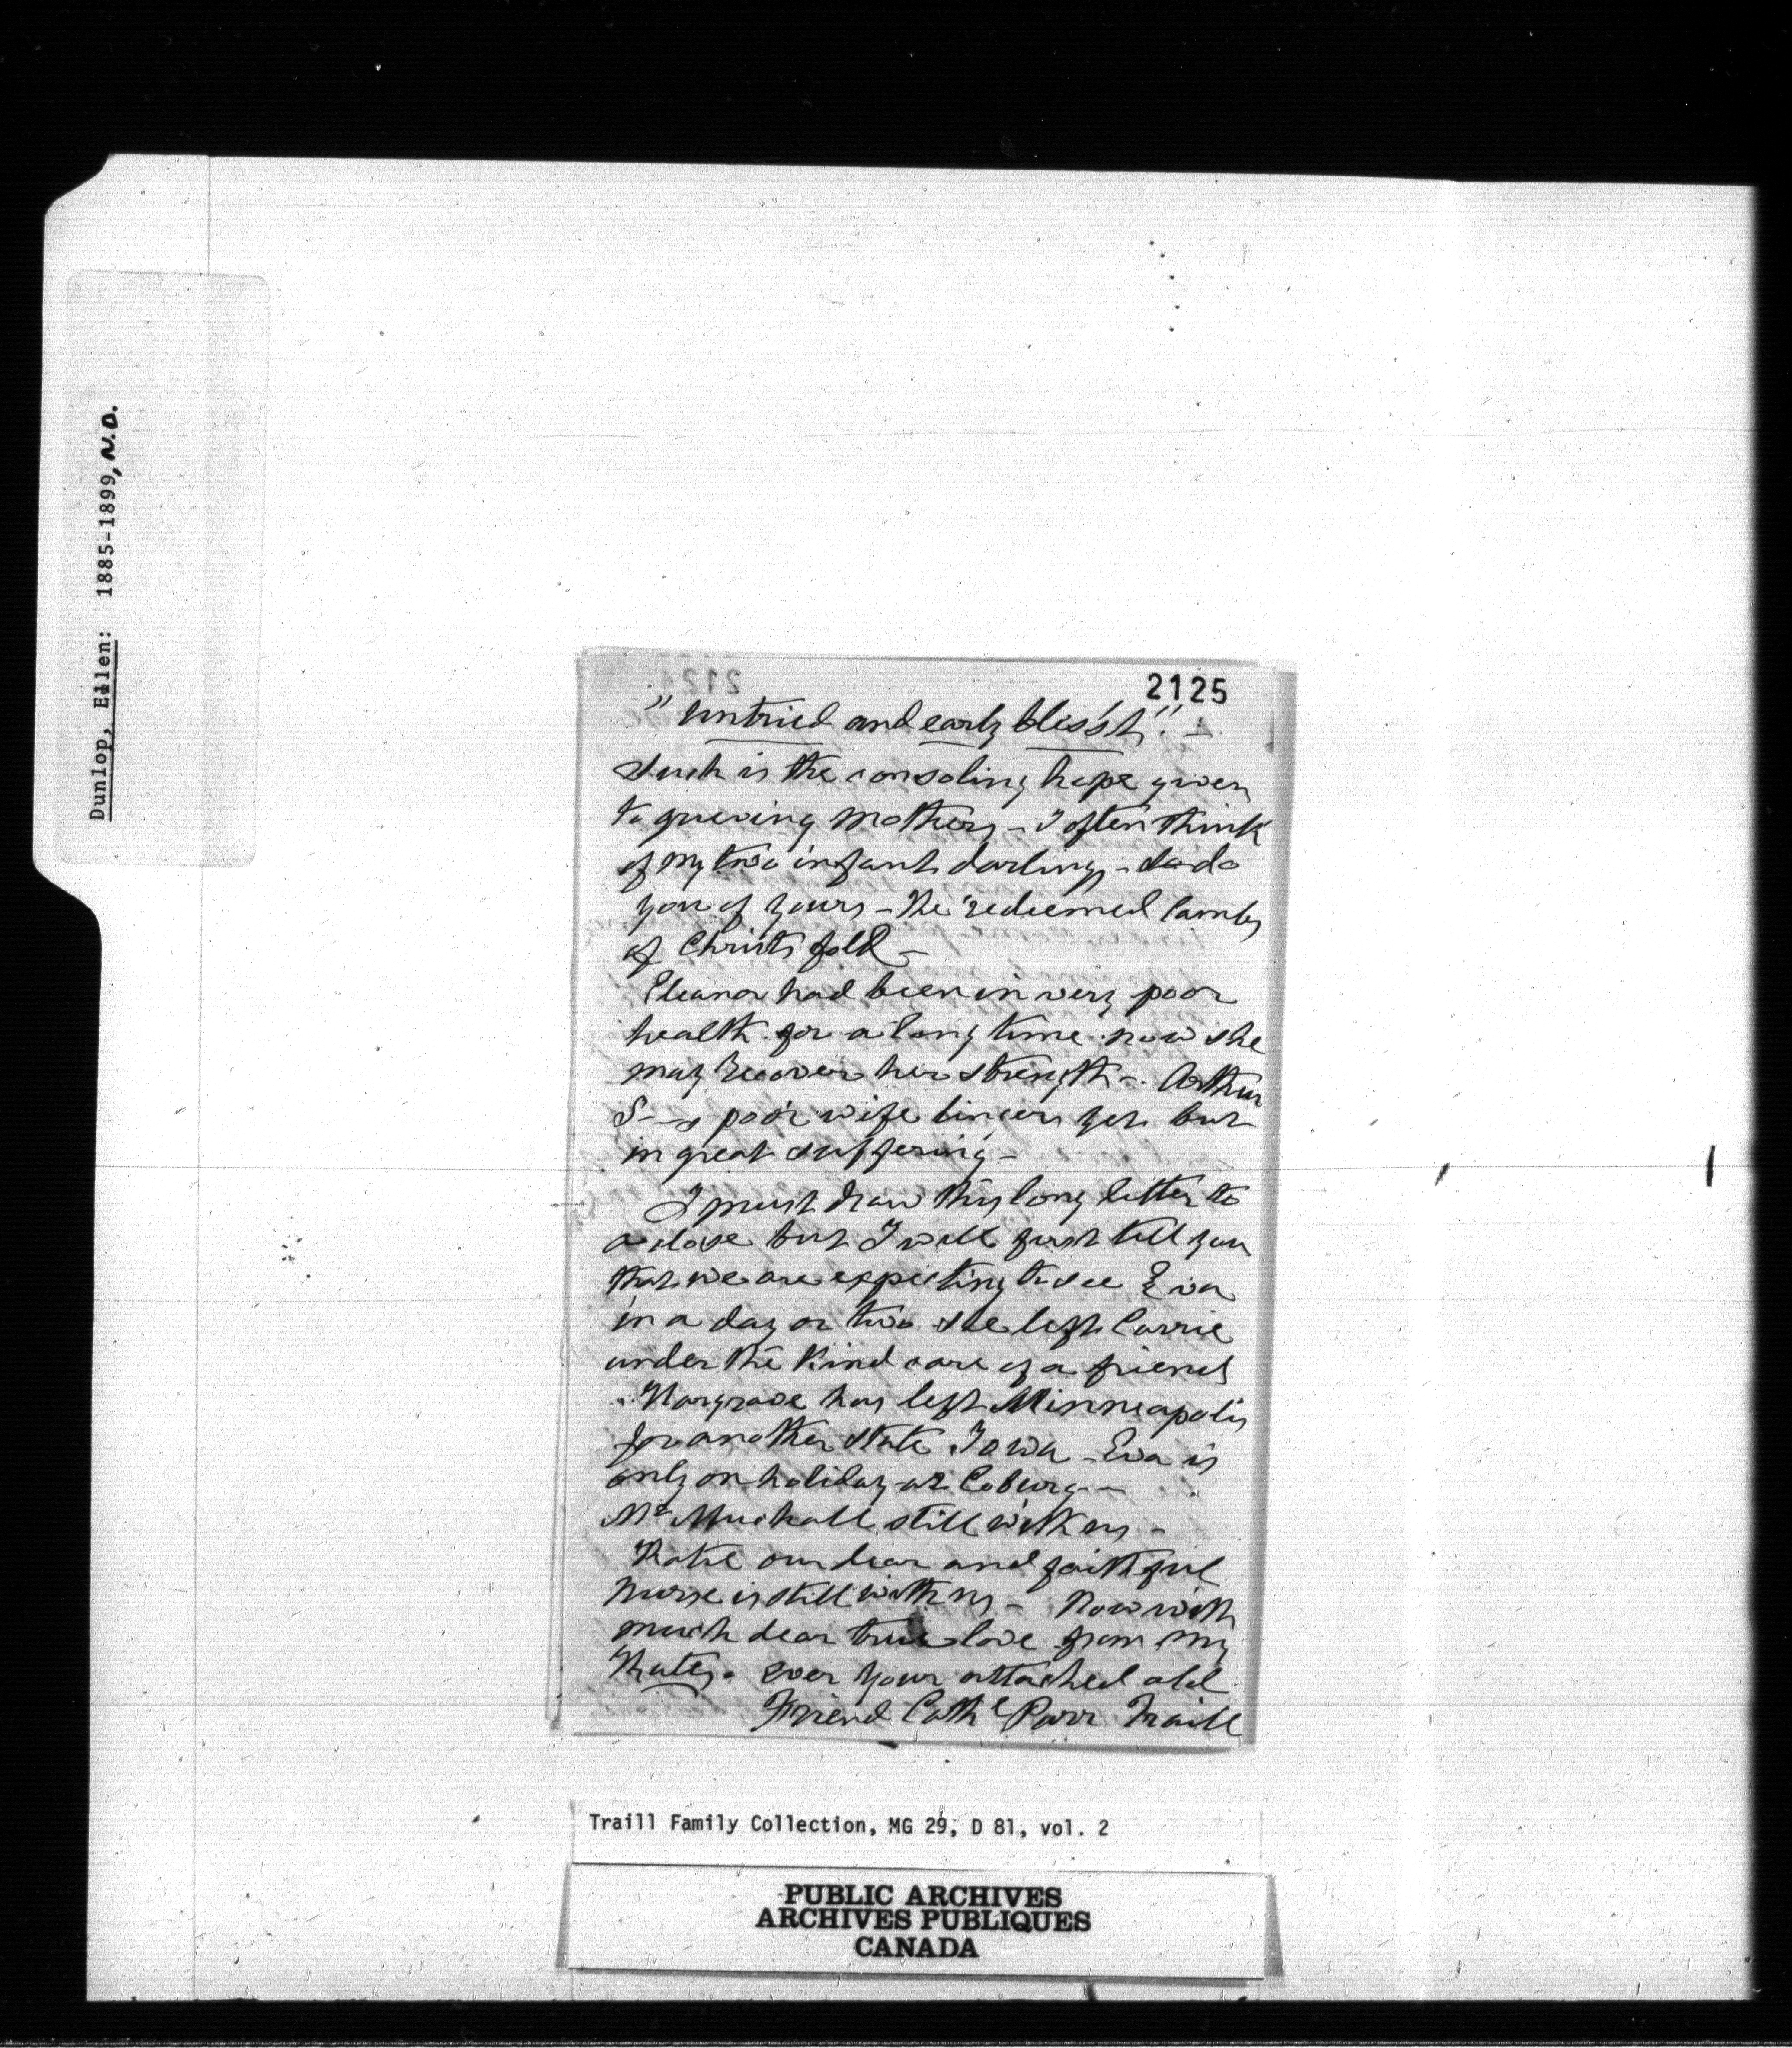 Dunlop, Ellen: 1885-1899, N.D.
2125
"untried and early bless'd". —
Such is the consoling hope given
to grieving Mothers — I often think
of my two infant darlings — so do
you of yours — The redeemed lambs
of Christs fold —
Eleanor had been in very poor
health for a long time now she
may recover her strength — Arthur
S—s poor wife lingers yet but
in great suffering —
I must draw this long letter to
a close but I will just tell you
that we are expecting to see Eva
in a day or two she left Carrie
under the kind care of a friend
Hargrave has left Minneapolis
for another state Iowa — Eva is
only on holiday at Coburg —
Mr Muchall still with us —
Katie our dear and faithful
Nurse is still with us — Now with
much dear true love from my
Kate. ever your attached old
Friend Cathe Parr Traill
Traill Family Collection, MG 29, D 81, vol. 2
PUBLIC ARCHIVES
ARCHIVES PUBLIQUES
CANADA